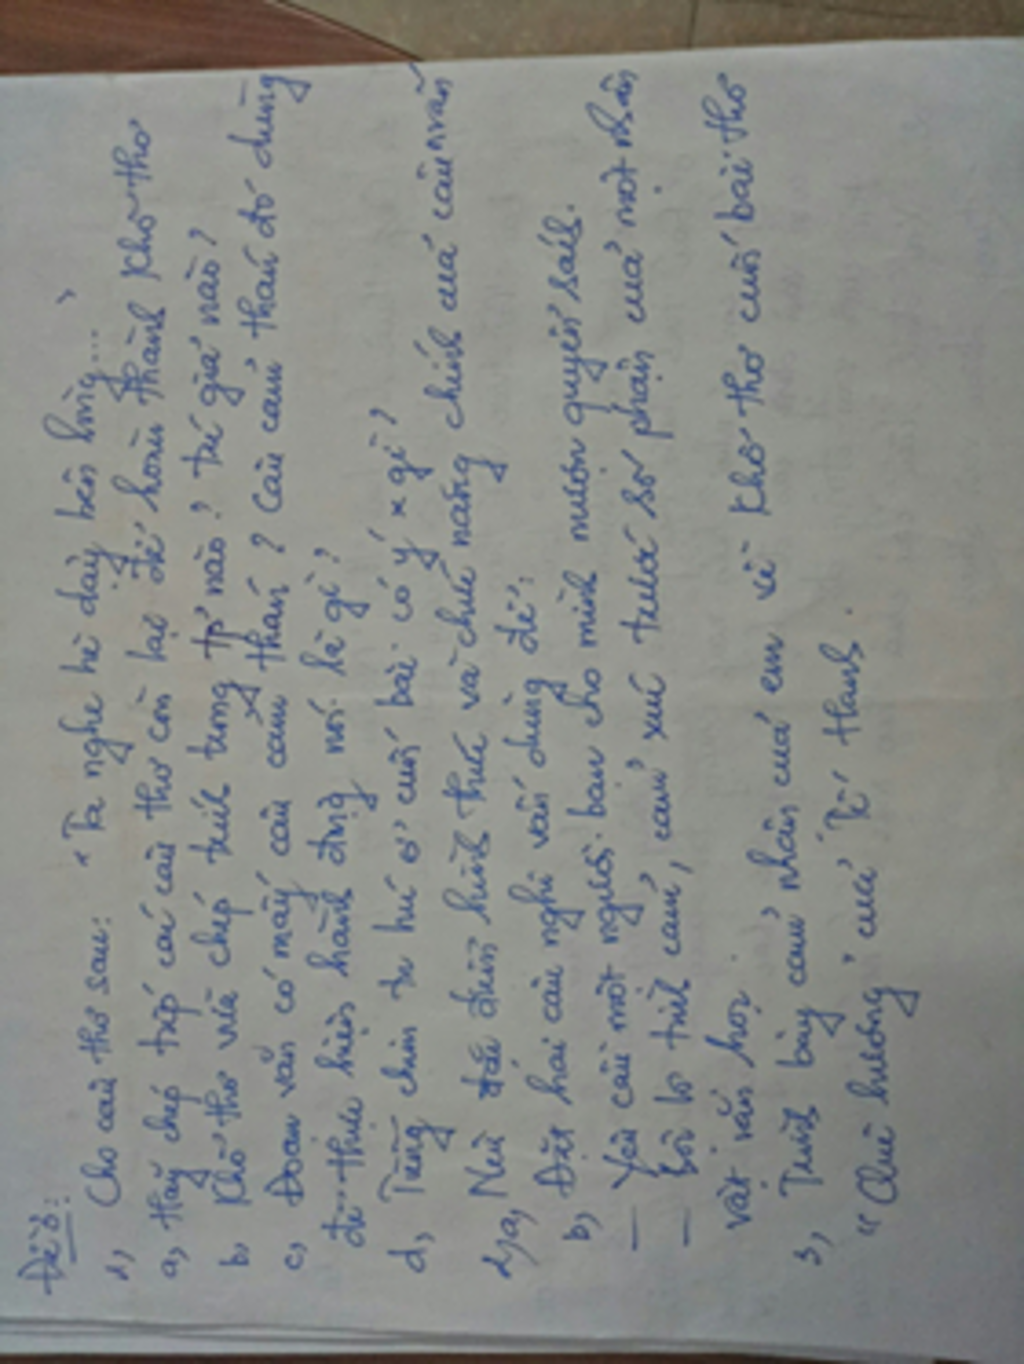 Đề 8:
1, Cho câu thơ sau: "Ta nghe hè dậy bên lòng..."
a, Hãy chép tiếp các câu thơ còn lại để hoàn thành khổ thơ
b, Khổ thơ vừa chép trích trong tp nào? Tác giả nào?
c, Đoạn văn có mấy câu cảm thán? Câu cảm thán đó dùng
để thực hiện hành động nói là gì?
d, Tiếng chim tu hú ở cuối bài có ý x gì?
2, a, Nêu đặc điểm hình thức và chức năng chính của câu nvấn
b, Đặt hai câu nghi vấn dùng để:
— Yêu cầu một người bạn cho mình mượn quyển sách.
— Bộc lộ tình cảm, cảm xúc trước số phận của một nhân
vật văn học.
3, Trình bày cảm nhận của em về khổ thơ cuối bài thơ
"Quê hương" của Tế Hanh.